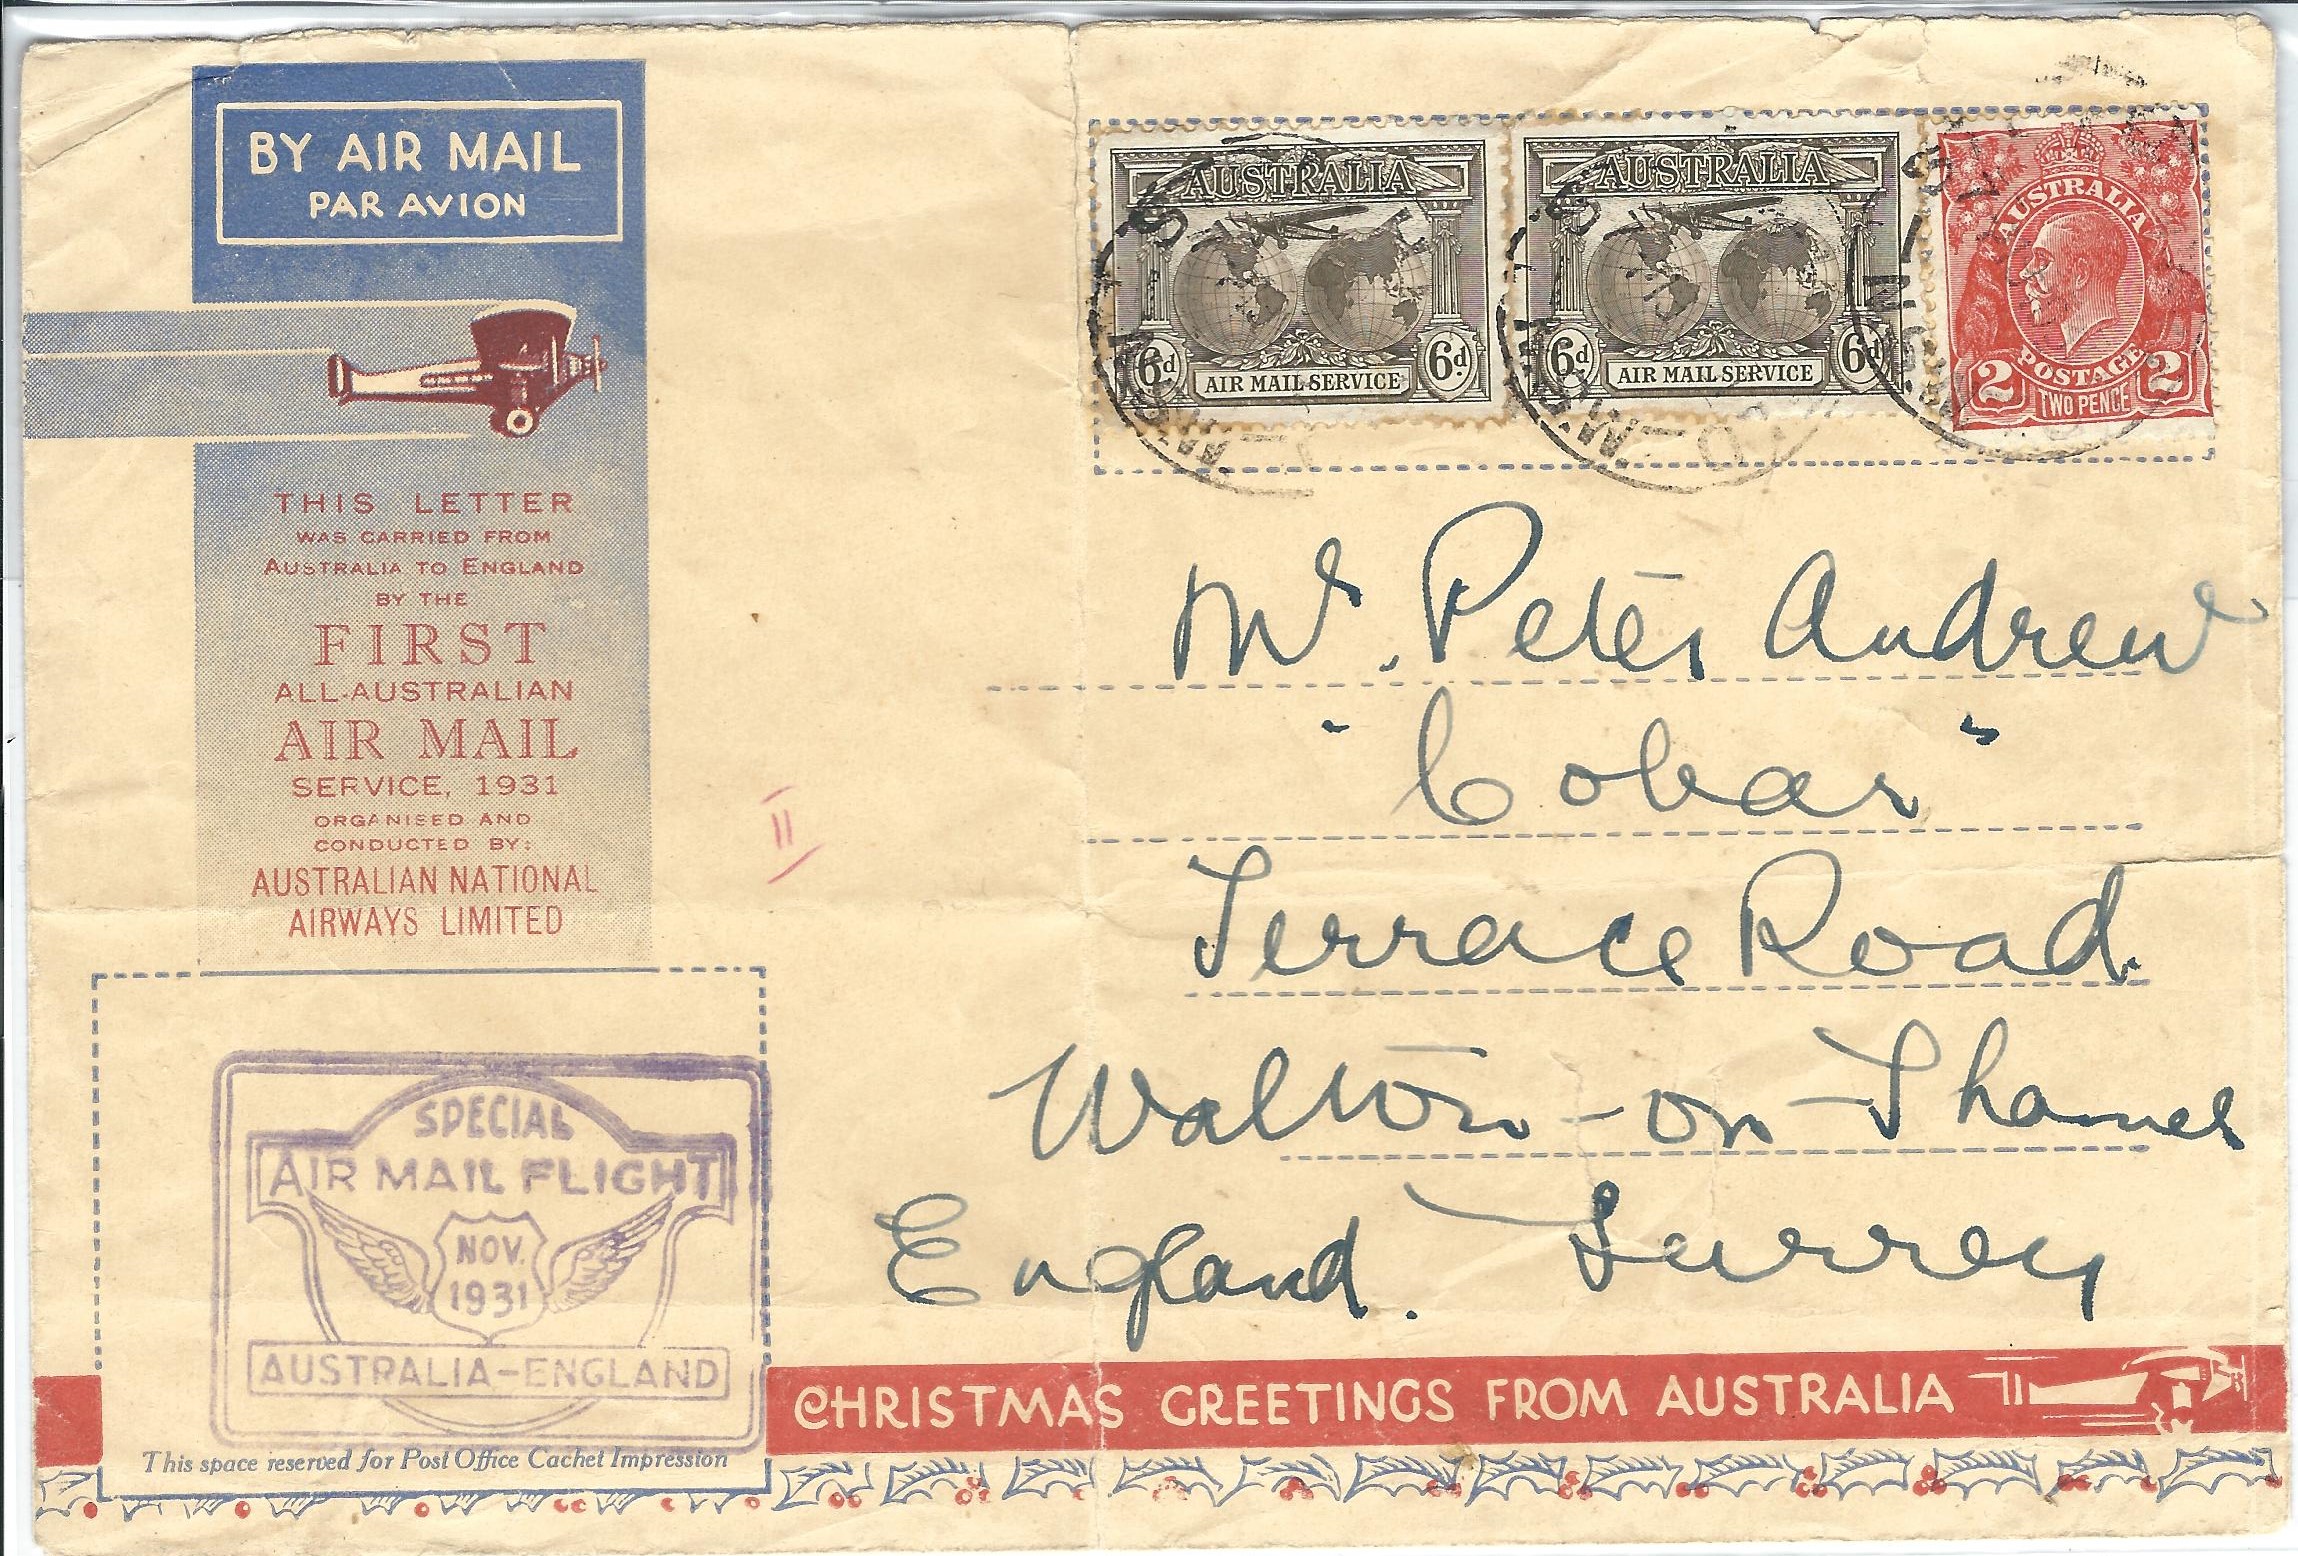 BY AIR MAIL
PAR AVION
THIS LETTER
WAS CARRIED FROM
AUSTRALIA TO ENGLAND
BY THE
FIRST
ALL-AUSTRALIAN
AIR MAIL
SERVICE, 1931
ORGANISED AND
CONDUCTED BY:
AUSTRALIAN NATIONAL
AIRWAYS LIMITED
AUSTRALIA
6d 6d
AIR MAIL SERVICE
AUSTRALIA
6d 6d
AIR MAIL SERVICE
AUSTRALIA
POSTAGE
2 2
TWO PENCE
II
Mr. Peter Andrew
"Cobar"
Terrace Road.
Walton-on-Thames
England. Surrey
SPECIAL
AIR MAIL FLIGHT
NOV.
1931
AUSTRALIA-ENGLAND
This space reserved for Post Office Cachet Impression
CHRISTMAS GREETINGS FROM AUSTRALIA